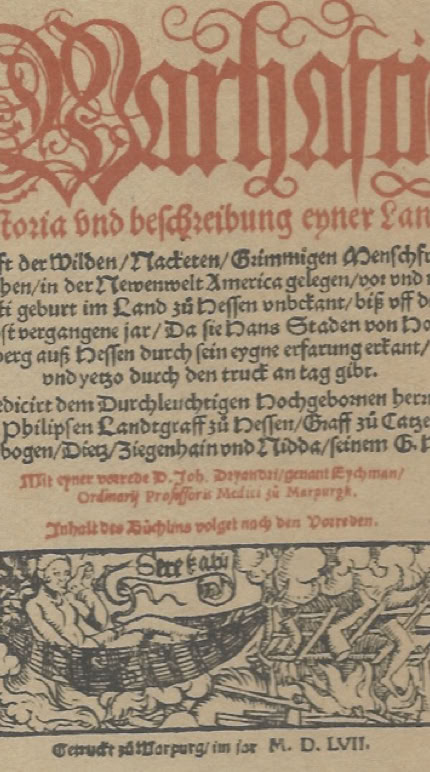 Warhafti
storia vnd beschreibung eyner Lan
fft der Wilden/Nacketen/Grimmigen Menschfr
then/in der Newenwelt America gelegen/vor vnd n
sti geburt im Land zů Hessen vnbekant/biß vff di
hst vergangene jar/Da sie Hans Staden von Ho
berg auß Hessen durch sein eygne erfarung erkant/
vnd yetzo durch den truck an tag gibt.
Dedicirt dem Durchleuchtigen Hochgebornen herrn
Philipsen Landtgraff zů Hessen/Graff zů Catze
nbogen/Dietz/Ziegenhain vnd Nidda/seinem G. H
Mit eyner vorrede D. Joh. Dryandri/genant Eychman/
Ordinarij Professoris Medici zů Marpurgk.
Inhalt des Büchlins volget nach den Vorreden.
Sete katu
Getruckt zů Marpurg/im jar M. D. LVII.